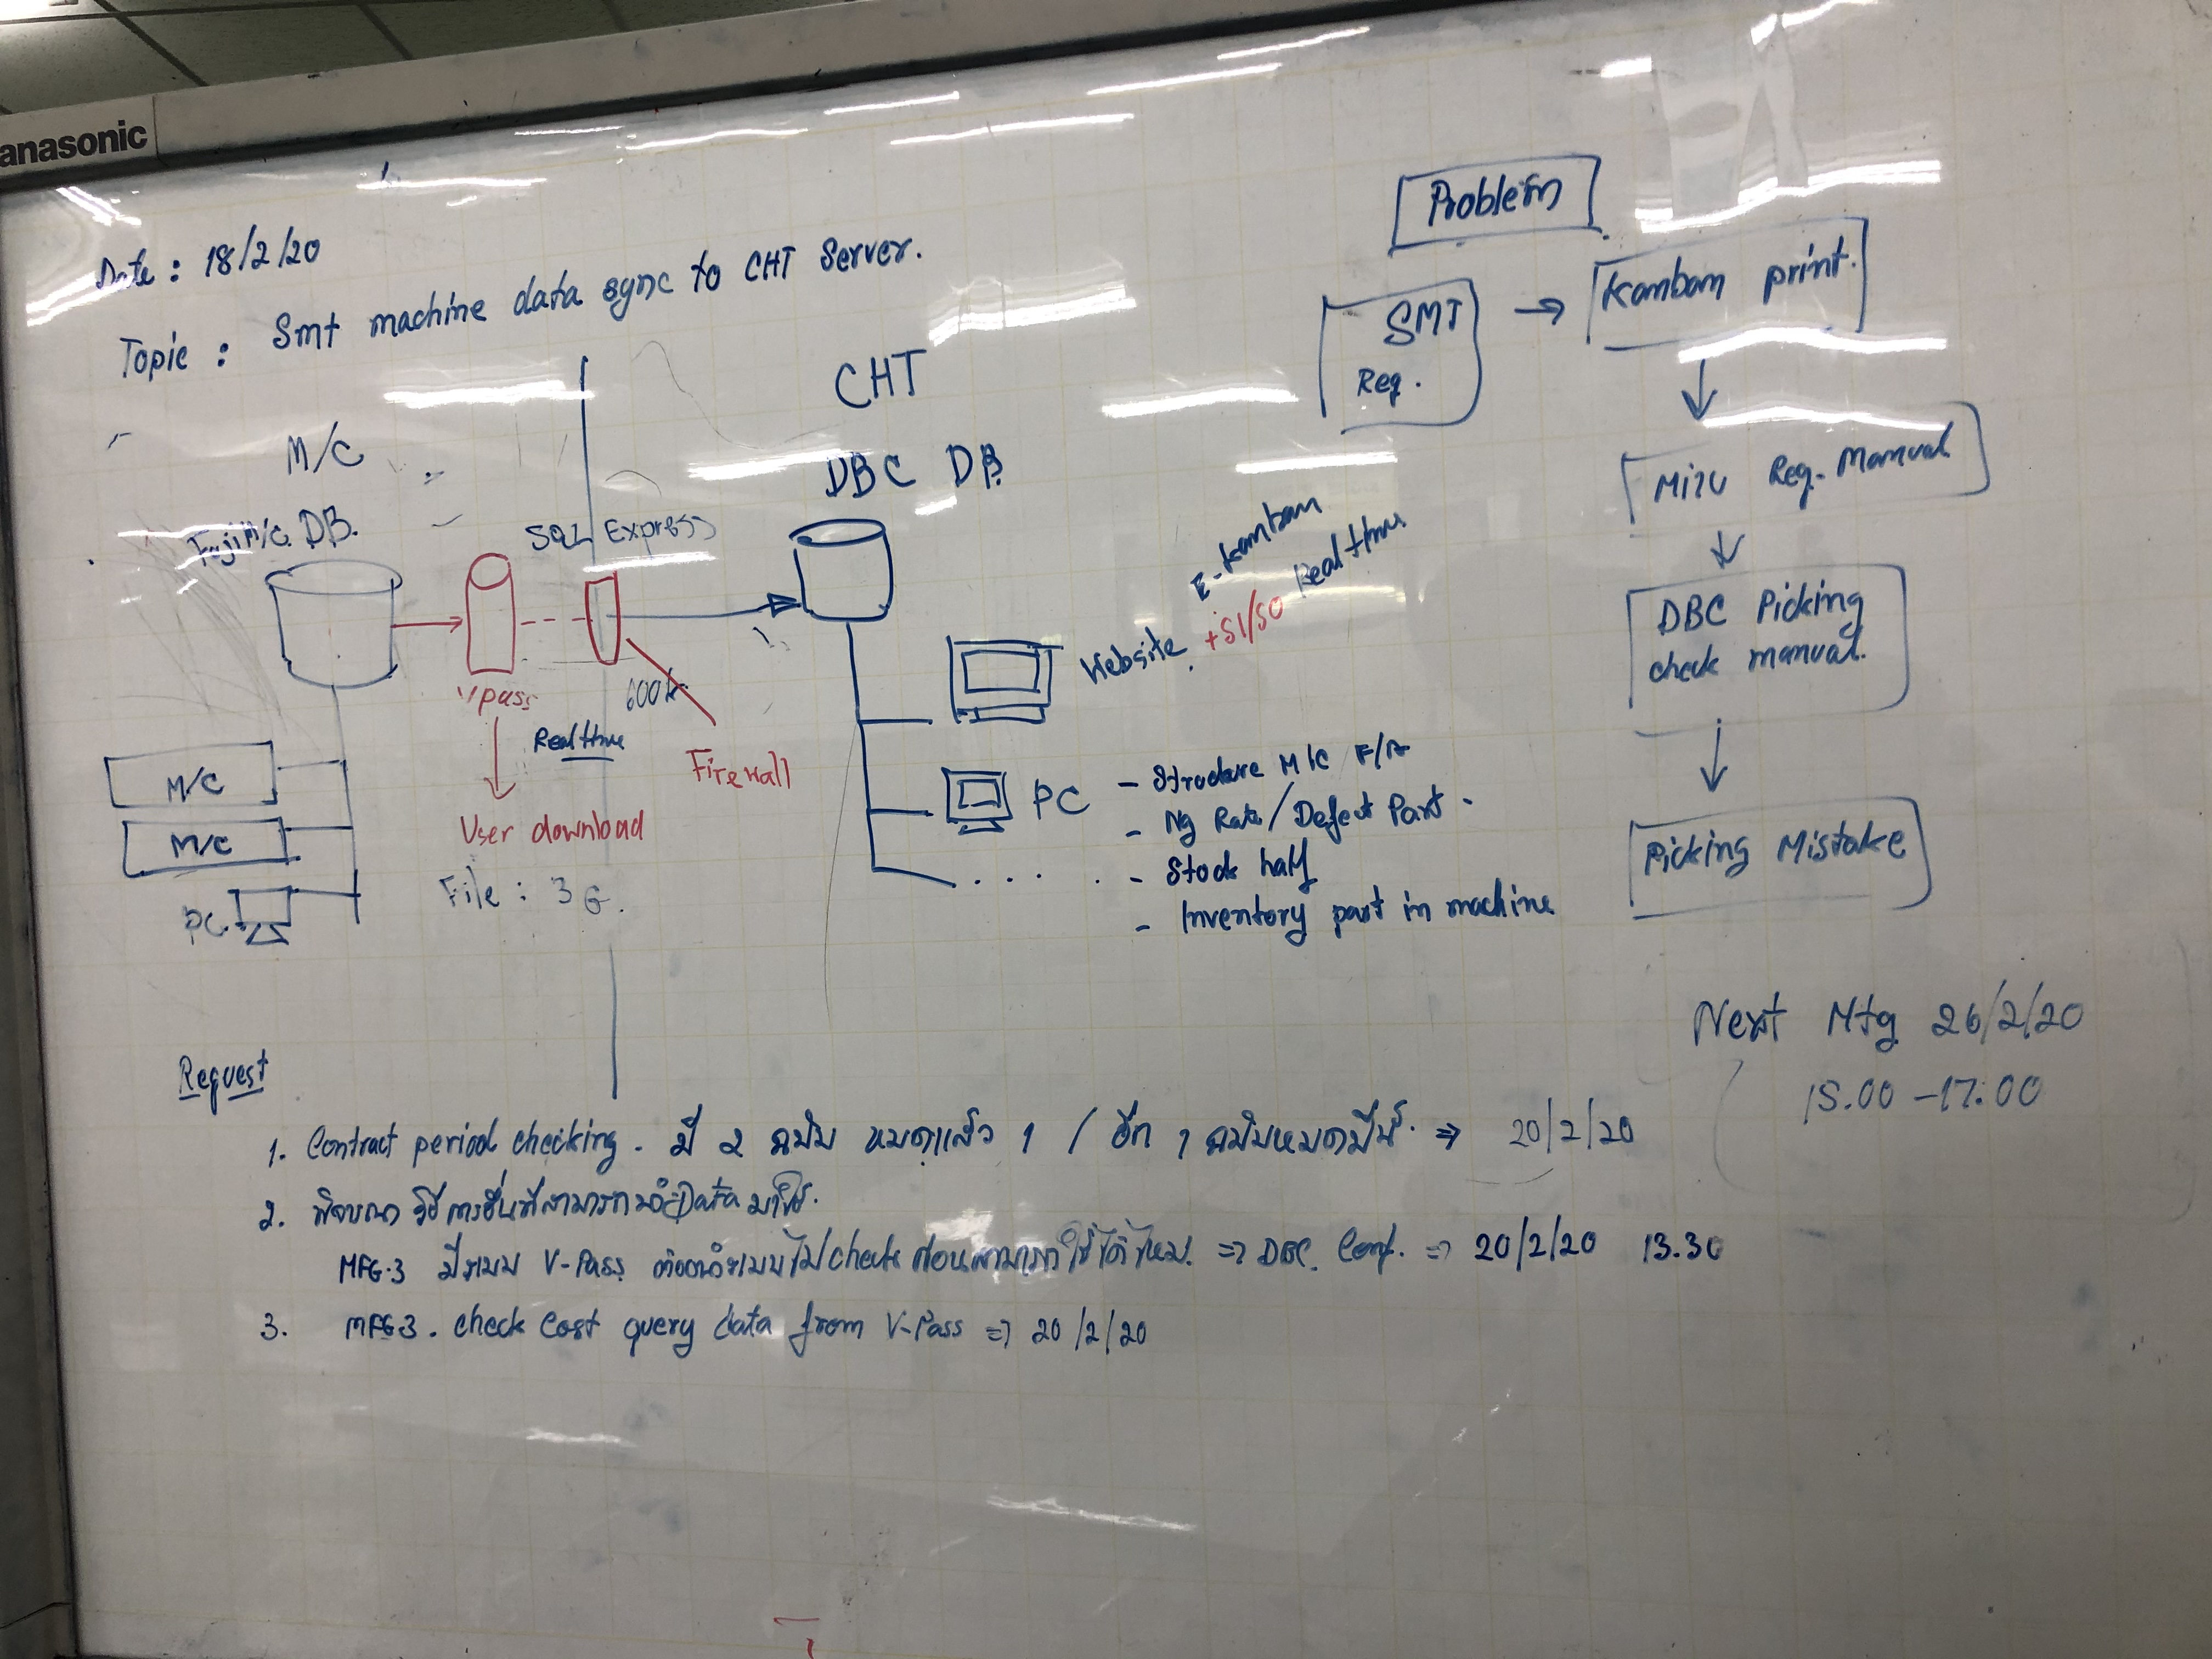 anasonic
Date : 18/2/20
Topic : Smt machine data sync to CHT Server.
M/C
Fuji M/C DB.
SQL Express
CHT
DBC DB
Vpass
Realtime
600k
Firewall
User download
File : 3 G.
M/C
M/C
PC
Website +SI/SO
E-kamban
Realtime
PC
- M/C F/A
- Ng Rate/Defect Part
- Stock half
- Inventory part in machine
Problem
SMT Req. → Kamban print.
Mizu Req. Manual
DBC Picking
check manual.
Picking Mistake
Next Mtg 26/2/20
15.00 - 17.00
Request
1. Contract period checking. มี 2 ฉบับ หมดแล้ว 1 / อีก 1 ฉบับหมดปีนี้. ⇒ 20/2/20
2. พิจารณา วิธีการอื่นที่สามารถนำ Data มาใช้.
MFG.3 มีระบบ V-Pass check ก่อน ใช้ได้ไหม. ⇒ DBC. Conf. ⇒ 20/2/20 13.30
3. MFG3. check Cost query data from V-Pass ⇒ 20/2/20